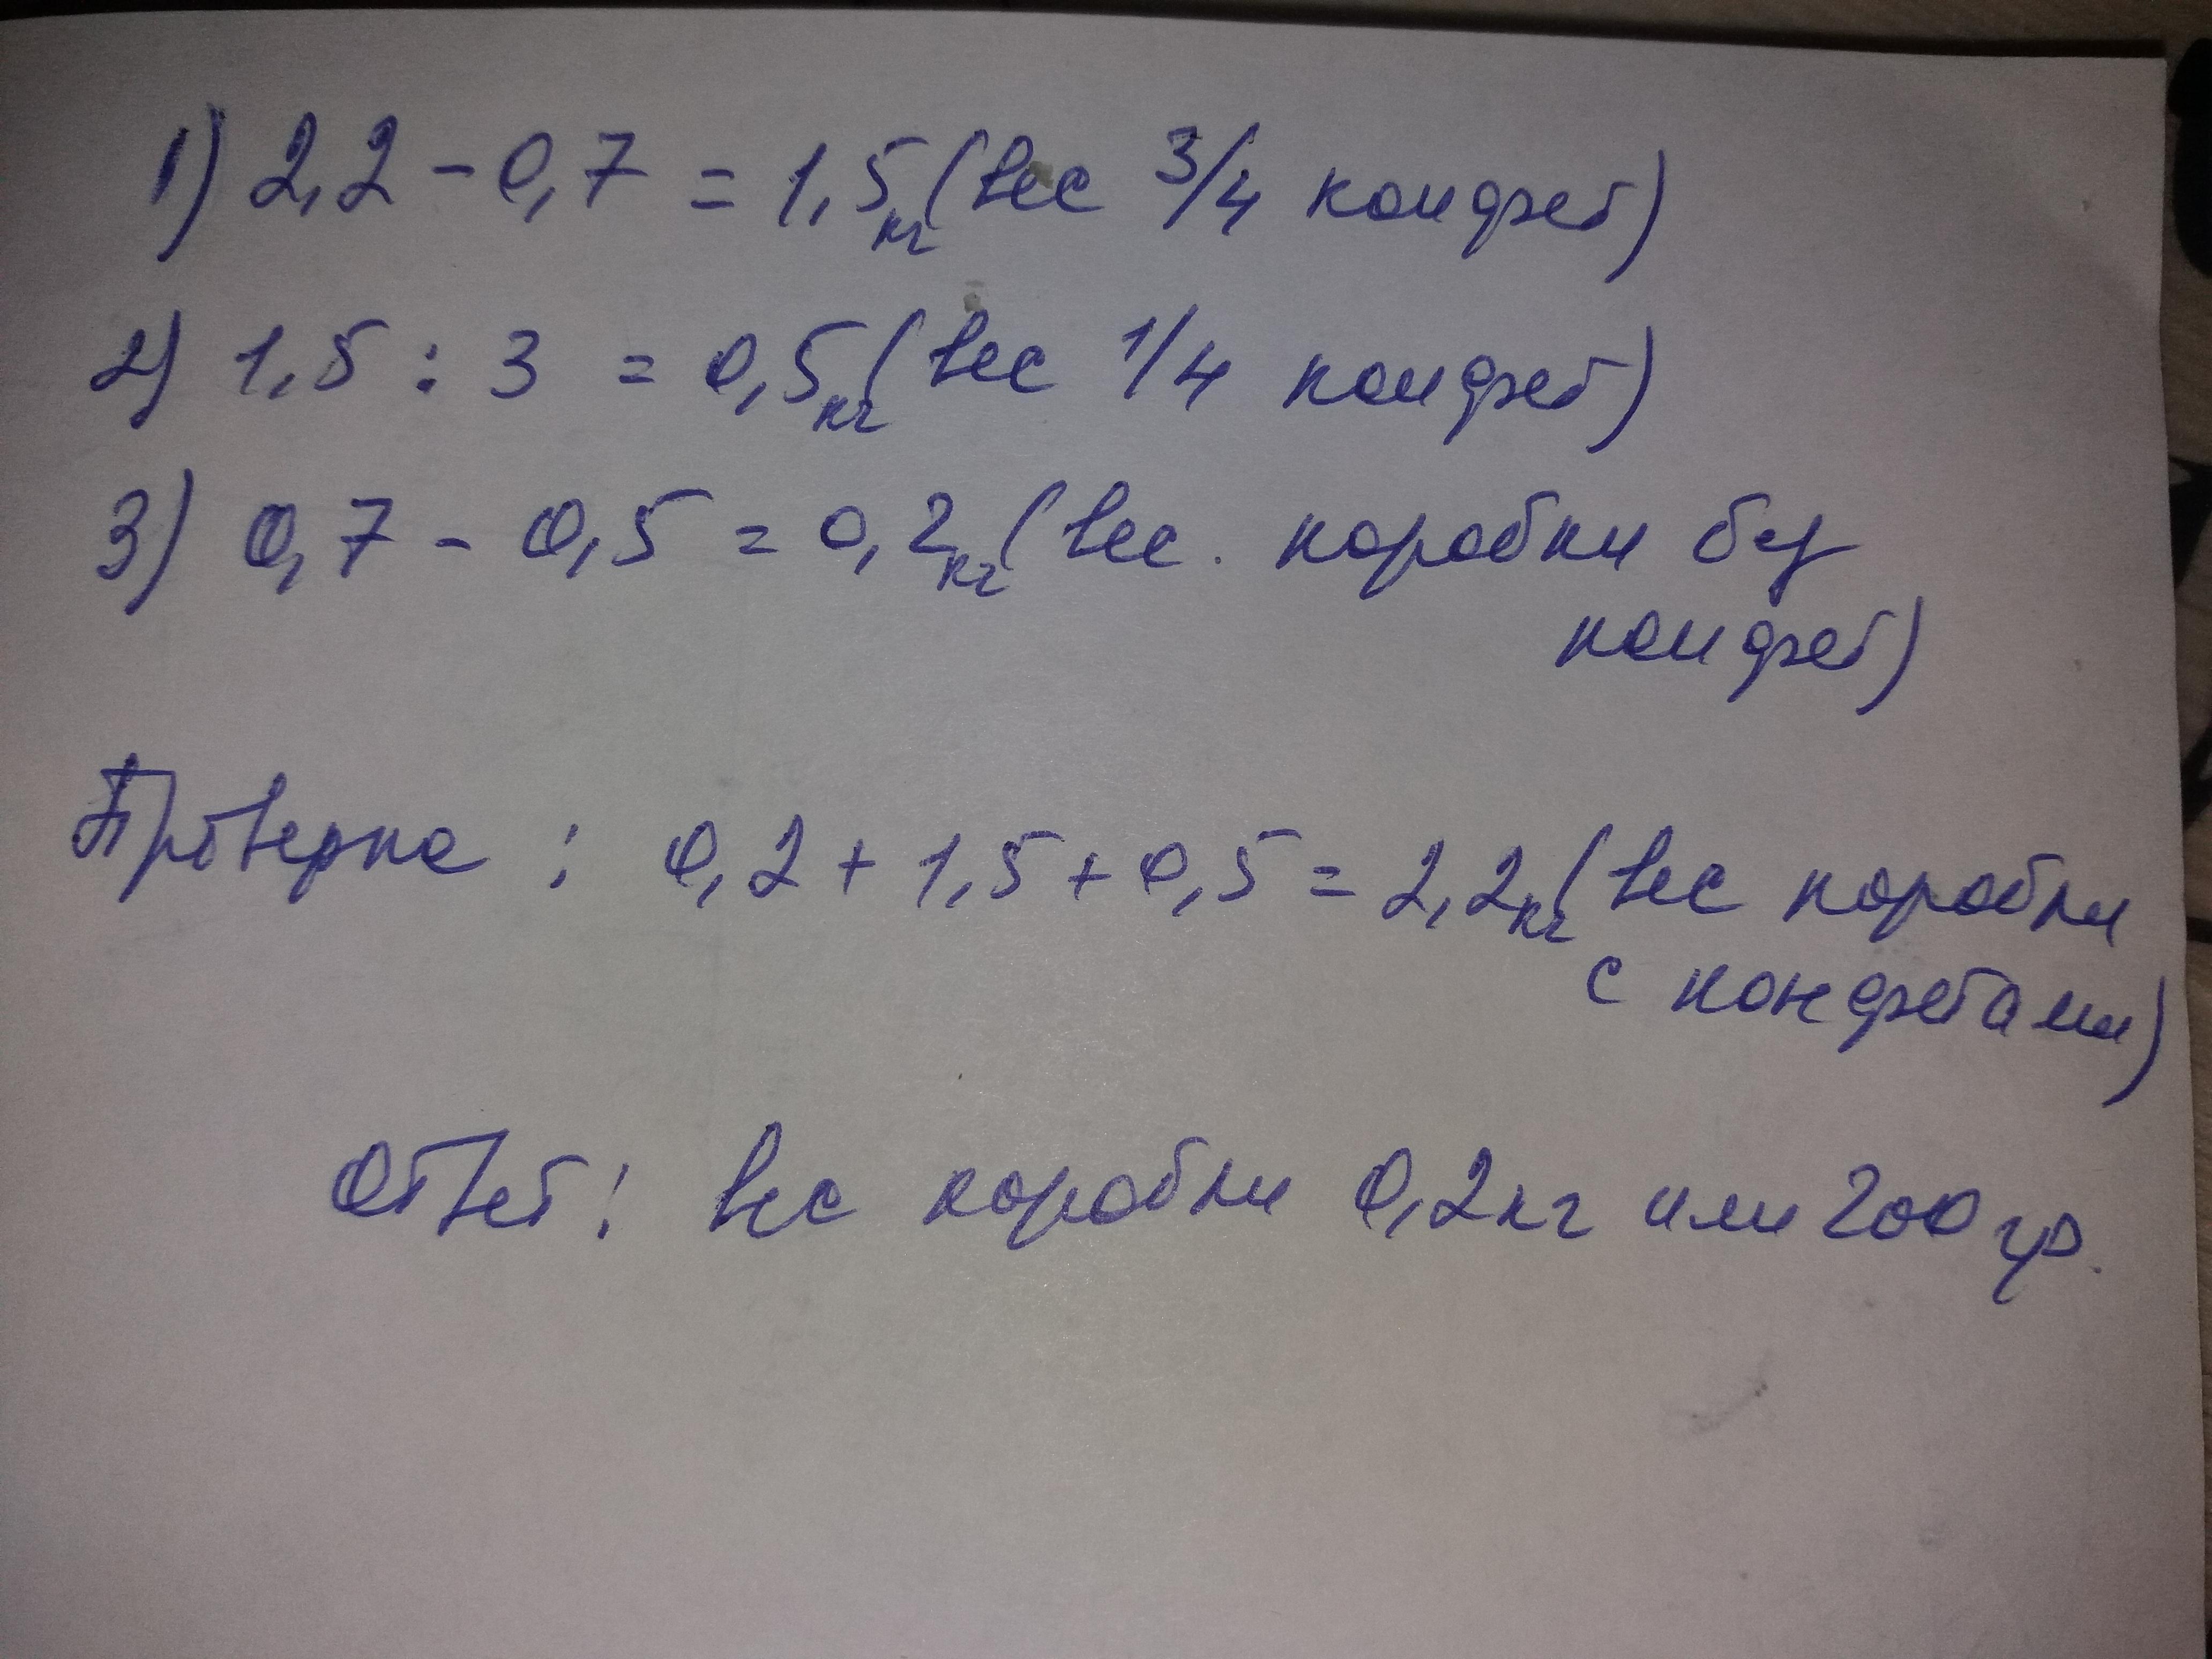 1) 2,2 - 0,7 = 1,5кг (вес 3/4 конфет)
2) 1,5 : 3 = 0,5кг (вес 1/4 конфет)
3) 0,7 - 0,5 = 0,2кг (вес. коробки без
конфет)
Проверка : 0,2 + 1,5 + 0,5 = 2,2кг (вес коробки
с конфетами)
Ответ: вес коробки 0,2кг или 200 гр.